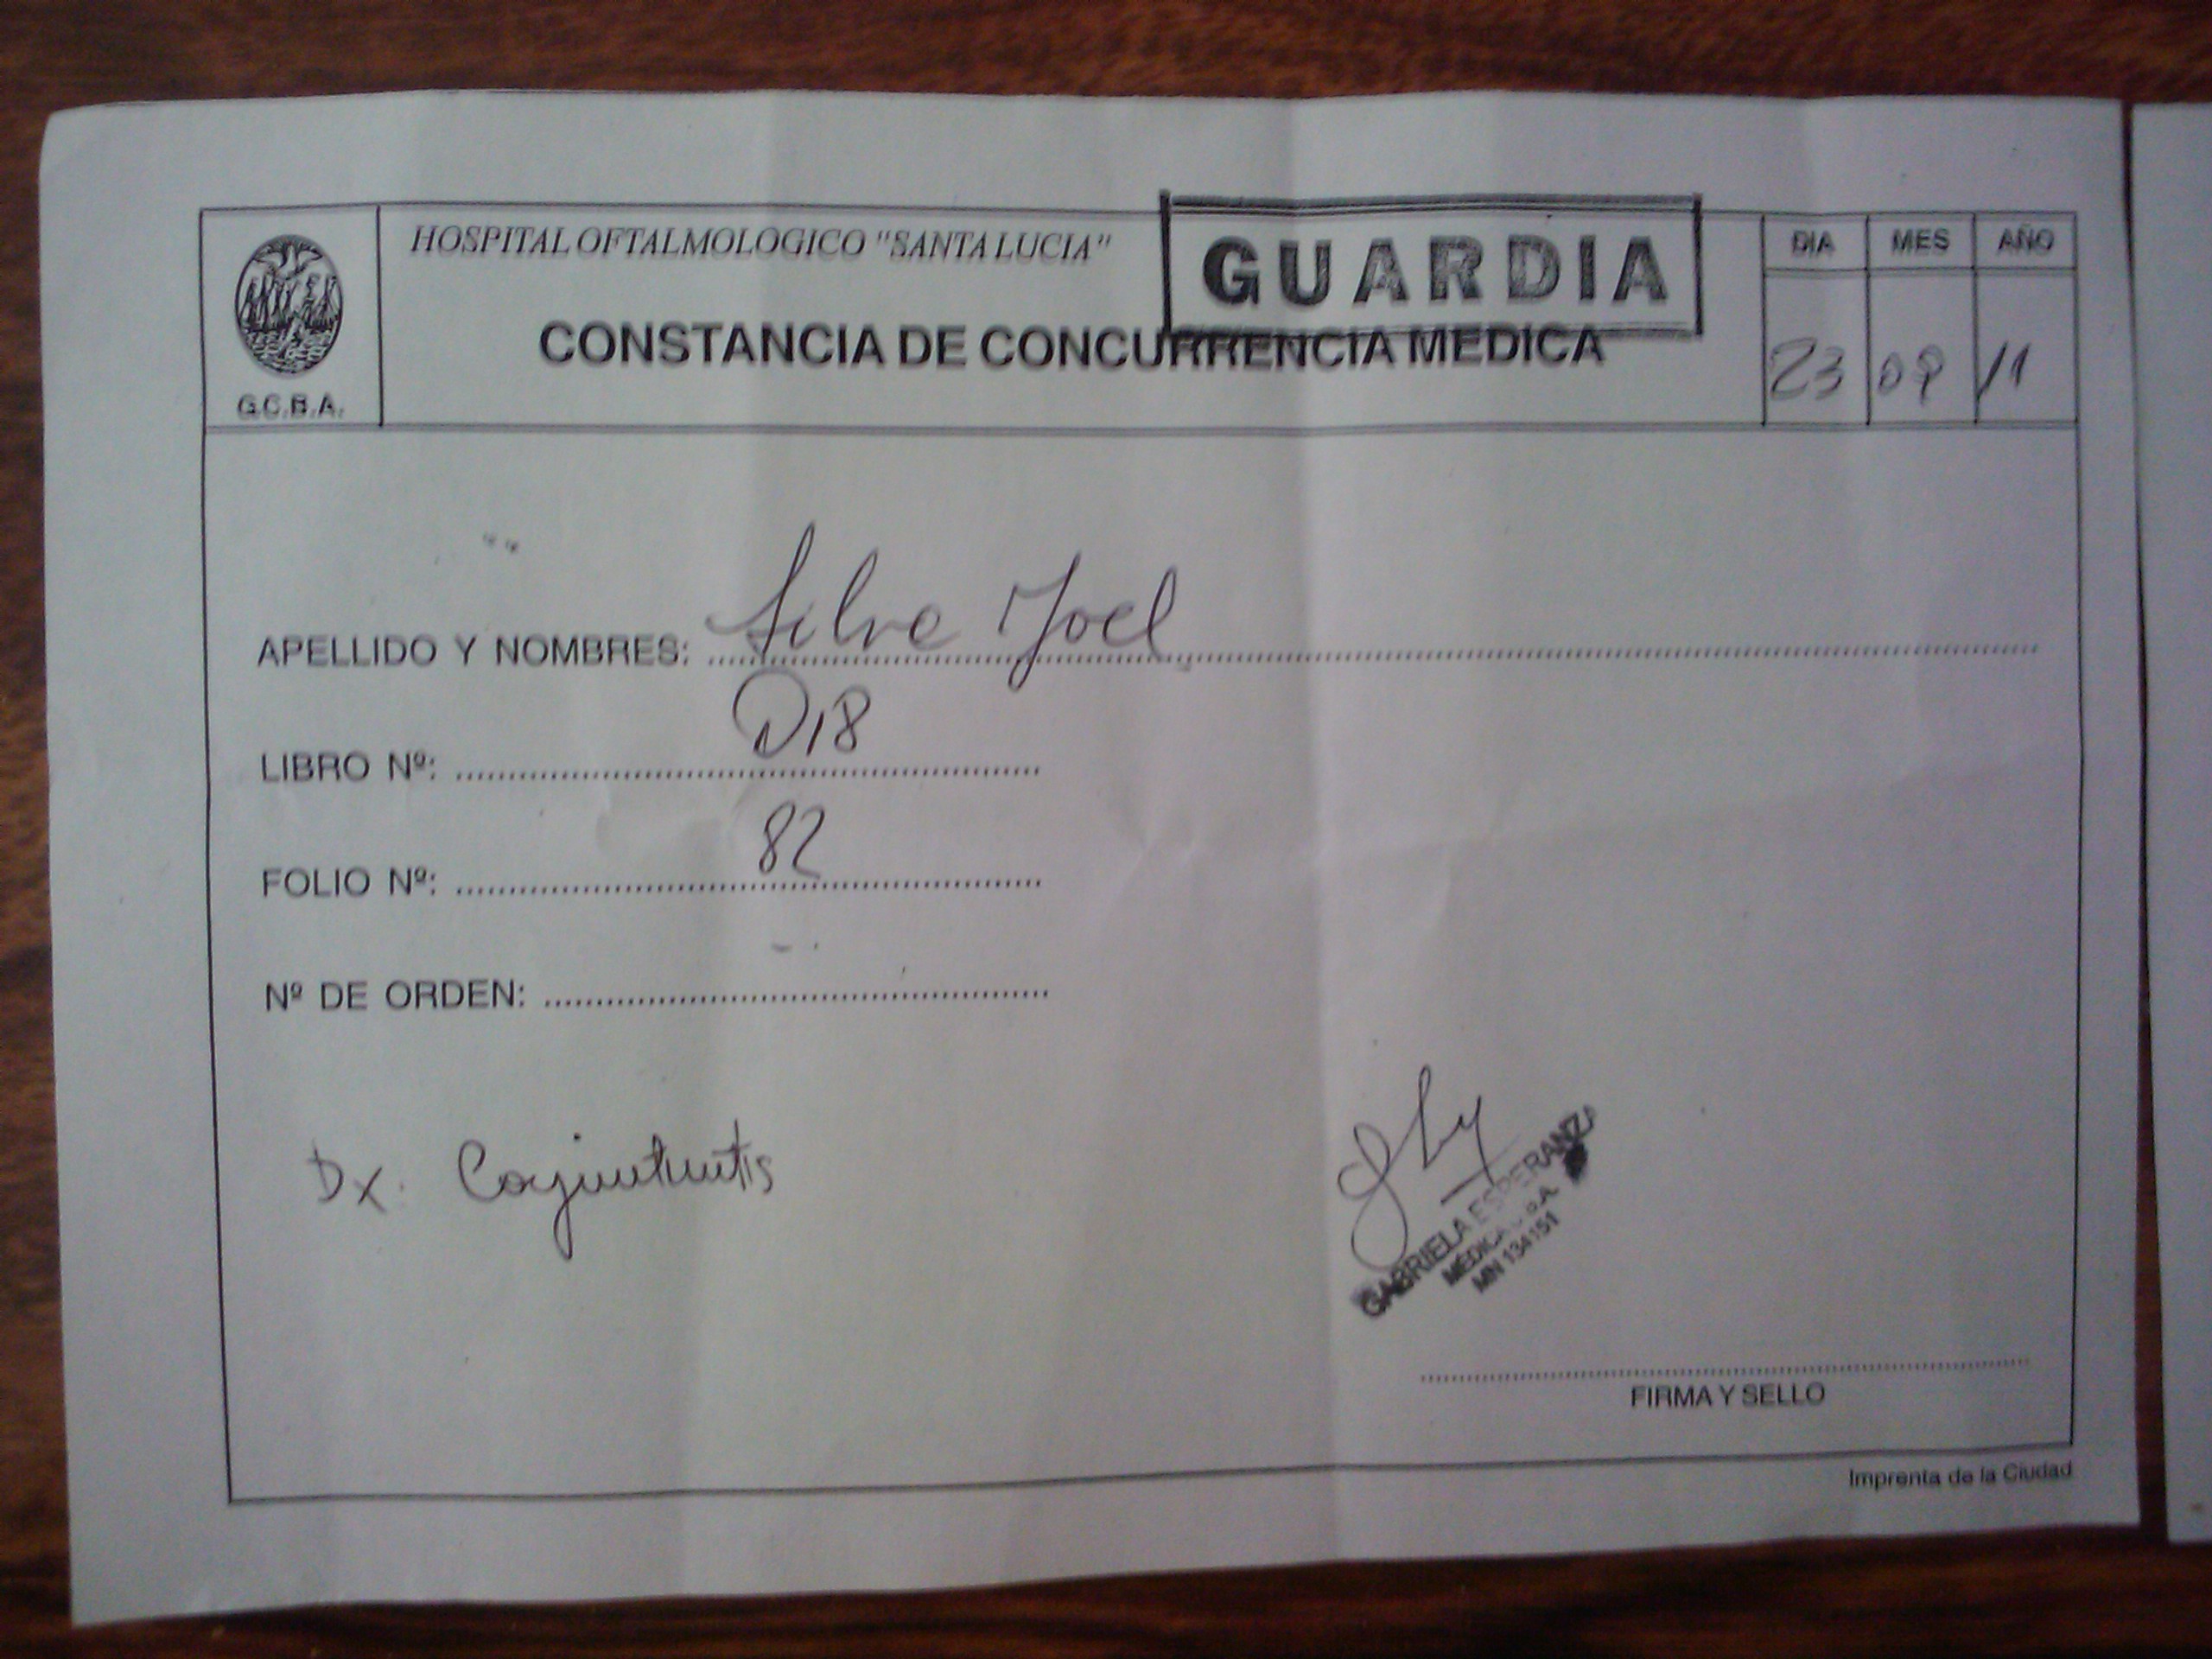 HOSPITAL OFTALMOLOGICO "SANTA LUCIA"
GUARDIA
DIA MES AÑO
CONSTANCIA DE CONCURRENCIA MEDICA
23 09 11
G.C.B.A.
APELLIDO Y NOMBRES: Silva Joel
LIBRO Nº: D18
FOLIO Nº: 82
Nº DE ORDEN:
Dx. Conjuntivitis
GABRIELA ESPERANZA
MEDICA U.B.A.
MN 134151
FIRMA Y SELLO
Imprenta de la Ciudad